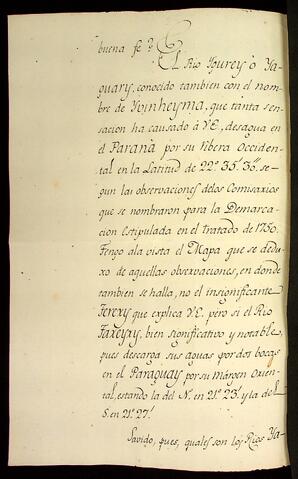 buena fe?
El Rio Ygurey ò Ya-
guary, conocido tambien con el nom-
bre de Yvinheyma, que tanta sen-
sacion ha causado à V.E., desagua en
el Paranà por su ribera Occiden-
tal en la Latitud de 22º. 35'. 30". se-
gun las observaciones delos Comisarios
que se nombraron para la Demarca-
cion Estipulada en el tratado de 1750.
Tengo ala vista el Mapa que se dedu-
xo de aquellas observaciones, en donde
tambien se halla, no el insignificante
Jerexy que explica V.E. pero si el Rio
Taxeyxy, bien significativo y notable,
pues descarga sus aguas por dos bocas
en el Paraguay por su màrgen Orien-
tal, estando la del N. en 21º. 23'. y la de L
S. en 21º. 27'.
Savido, pues, quales son los Rios Ya-